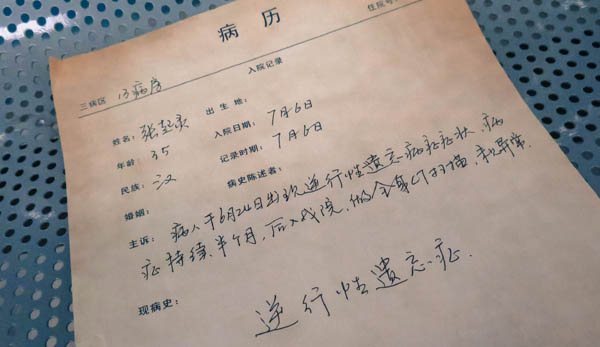 病历
住院号
入院记录
三病区 13病房
姓名: 张起灵 出生地:
年龄 35 入院日期: 7月6日
民族: 汉 记录时期: 7月6日
婚姻: 病史陈述者:
主诉: 病人于6月24日出现逆行性遗忘症症状,病
症持续半个月,后入我院,做全身CT扫描,未异常.
现病史: 逆行性遗忘症.